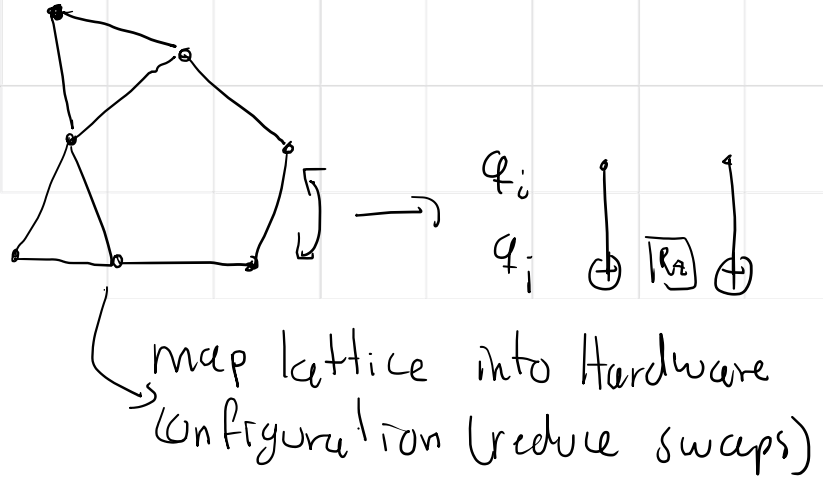 q_i
q_j
R_z
map lattice into Hardware
Configuration (reduce swaps)